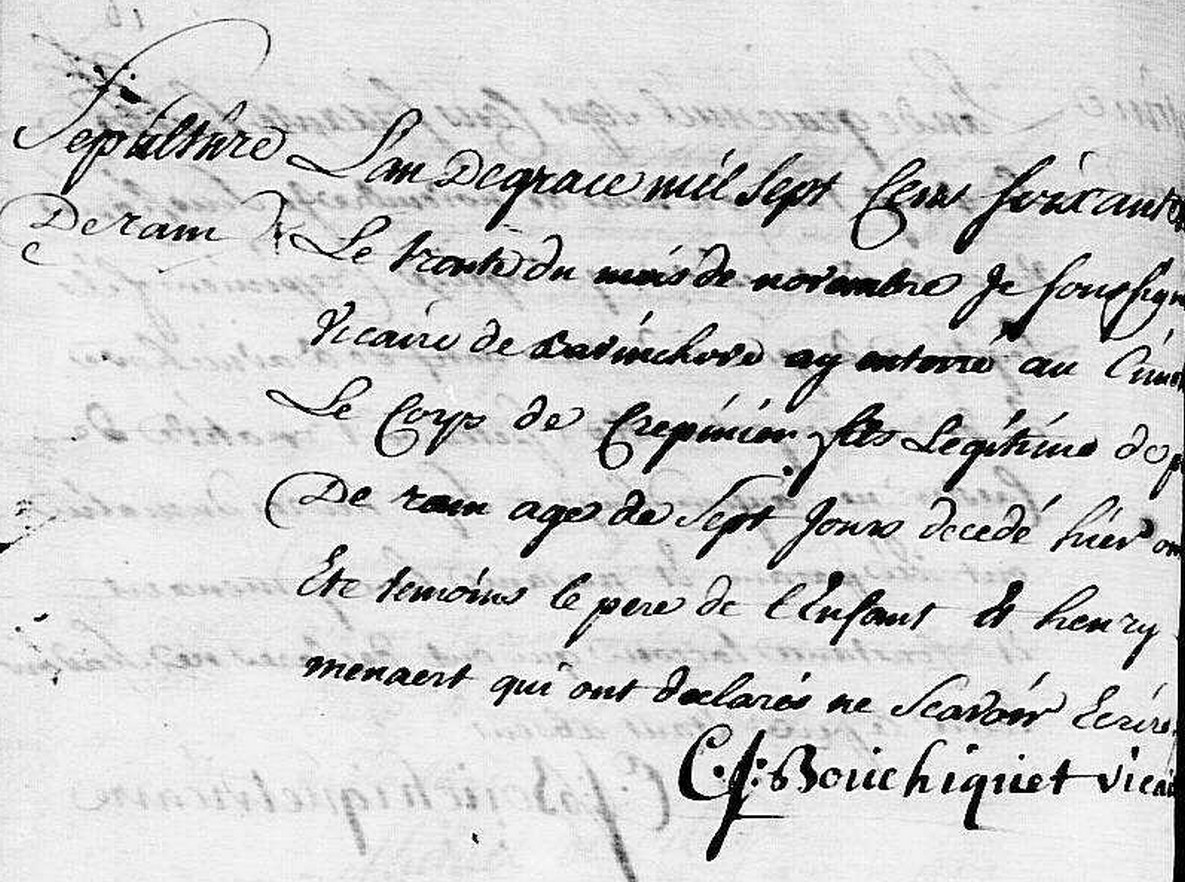 Sepulture Lan De grace mil Sept Cens soixante
De ram Le trente du mois de novembre Je soussign
Vicaire de Bavinchove ay enterré au Cime
Le Corps de Crepinien fils Legitime de p
De ram age de Sept Jours decedé hier on
Ete temoins le pere de l'Enfant Et henry
menaert qui ont declarés ne Scavoir Ecrire
C.f: Bouchiquet vicai